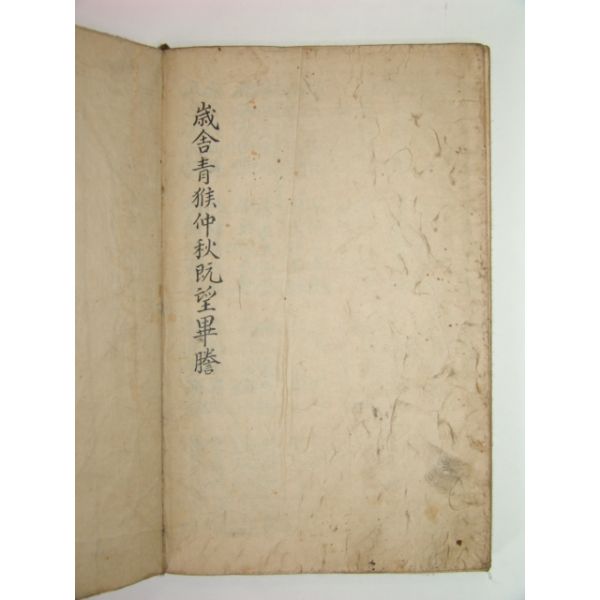 歲舎青猴仲秋旣望畢謄